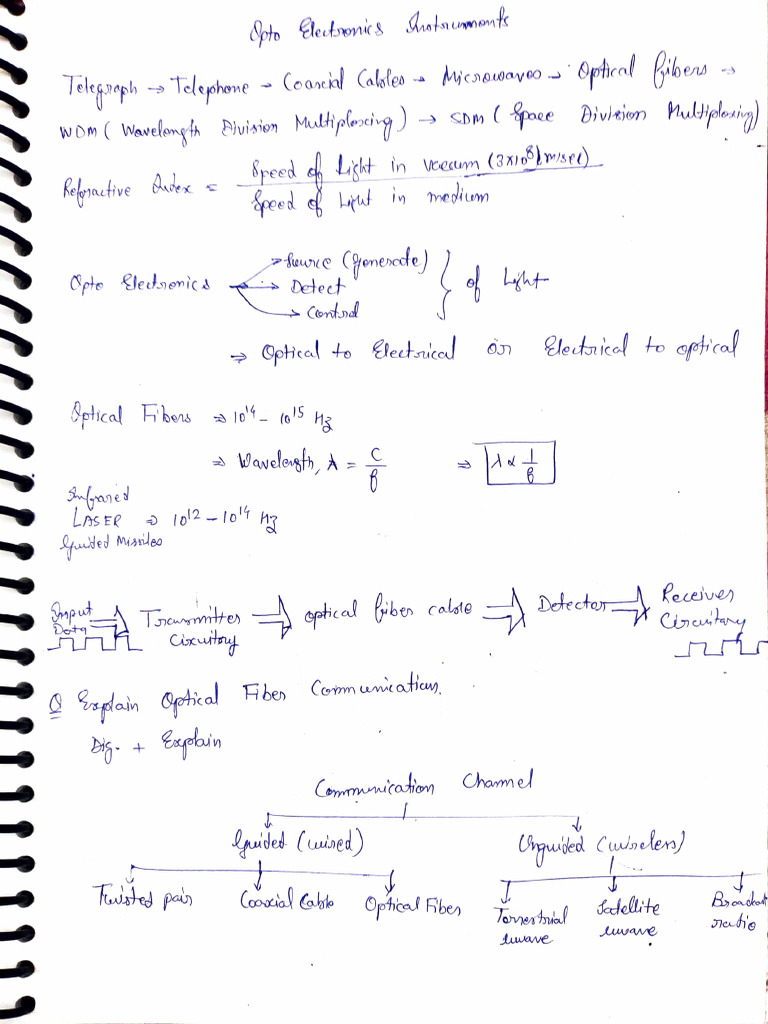 Opto Electronics Instruments
Telegraph → Telephone → Coaxial Cables → Microwaves → Optical fibers →
WDM (Wavelength Division Multiplexing) → SDM (Space Division Multiplexing)
Refractive Index = Speed of light in vaccum (3×10⁸) m/sec)
Speed of light in medium
Opto Electronics → Source (generate)
→ Detect } of light
→ Control
⇒ Optical to Electrical or Electrical to optical
Optical Fibers ⇒ 10¹⁴ – 10¹⁵ Hz
⇒ Wavelength, λ = C/f ⇒ λ ∝ 1/f
Infrared
LASER ⇒ 10¹² – 10¹⁴ Hz
Guided Missiles
Input Data ⇒ Transmitter Circuitory ⇒ optical fiber cable ⇒ Detector ⇒ Receiver Circuitary
Q Explain Optical Fiber Communication.
Dig. + Explain
Communication Channel
Guided (wired) Unguided (wireless)
Twisted pair Coaxial Cable Optical Fiber Terrestrial uwave Satellite uwave